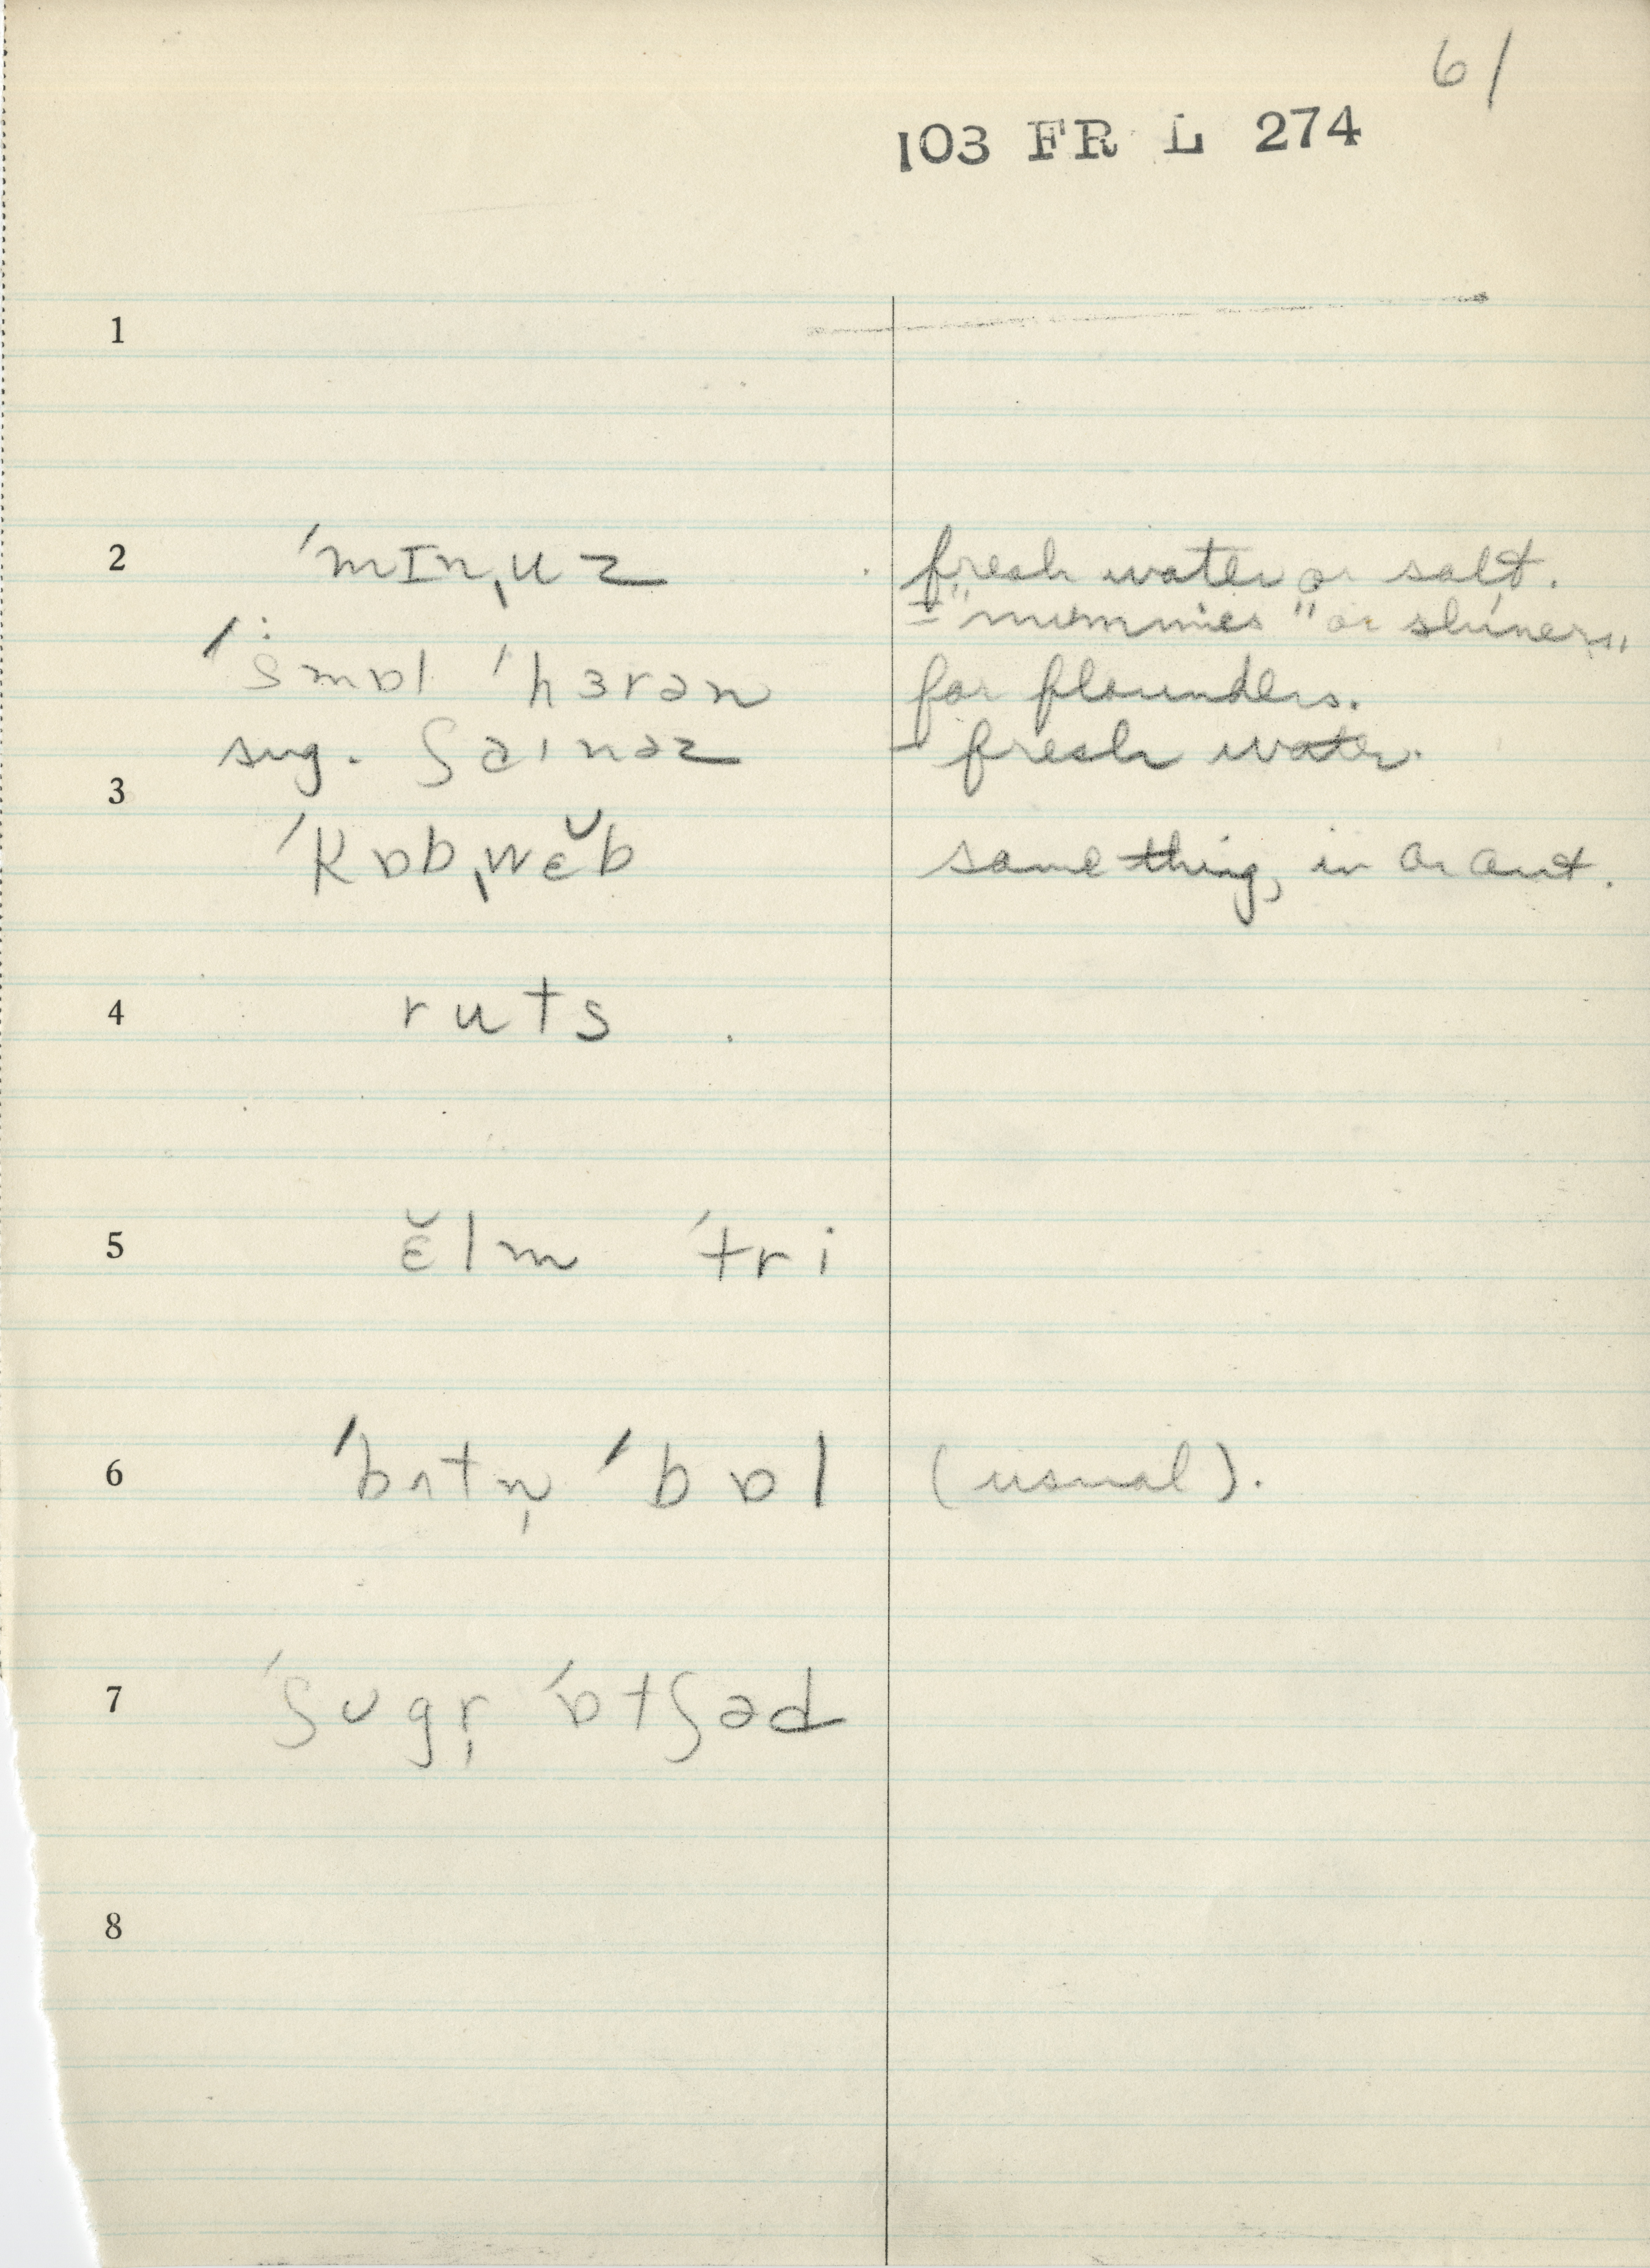 61
103 FR L 274
1
2 ˈmɪnˌuz fresh water or salt.
= "mummies" or shiners"
ˈsmɒl ˈhɜrən for flounders.
sug. ʃaɪnəz - fresh water.
3
ˈkɒbˌwɛ̆b same thing, in or out.
4 ruts
5 ɛ̆lm ˈtri
6 ˈbʌtn̩ ˈbɒl (usual).
7 ˈʃʊgr̩ ˈɒtʃəd
8